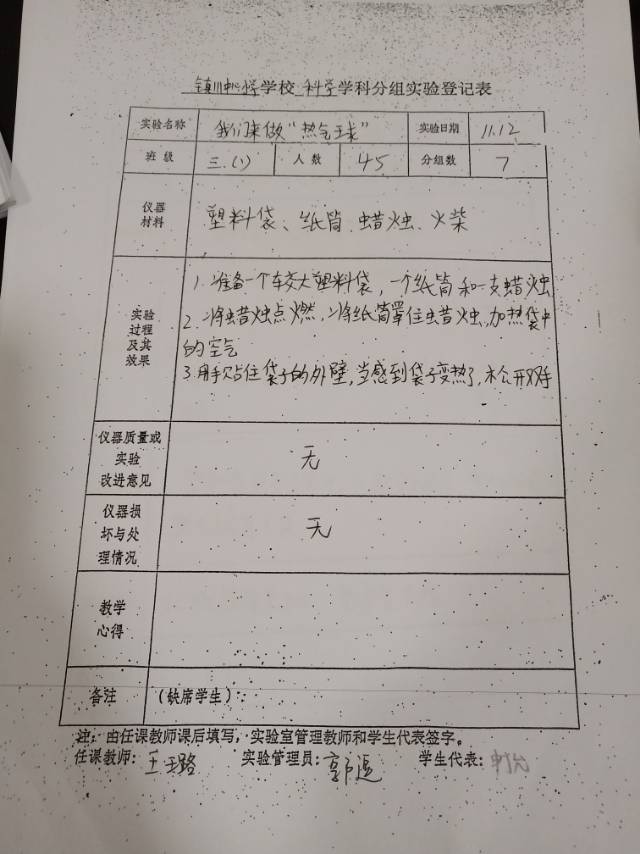 学校 科学学科分组实验登记表
实验名称 我们来做"热气球" 实验日期 11.12
班级 三.(1) 人数 45 分组数 7
仪器
材料
塑料袋、纸筒、蜡烛、火柴
实验
过程
及其
效果
1. 准备一个较大塑料袋，一个纸筒和一支蜡烛
2. 将蜡烛点燃，将纸筒罩住蜡烛，加热袋中
的空气
3. 用手贴住袋子的外壁，当感到袋子变热了，松开双手
仪器质量或
实验
改进意见
无
仪器损
坏与处
理情况
无
教学
心得
备注 (缺席学生)：
注：由任课教师课后填写，实验室管理教师和学生代表签字。
任课教师： 王 路 实验管理员： 郭 学生代表：